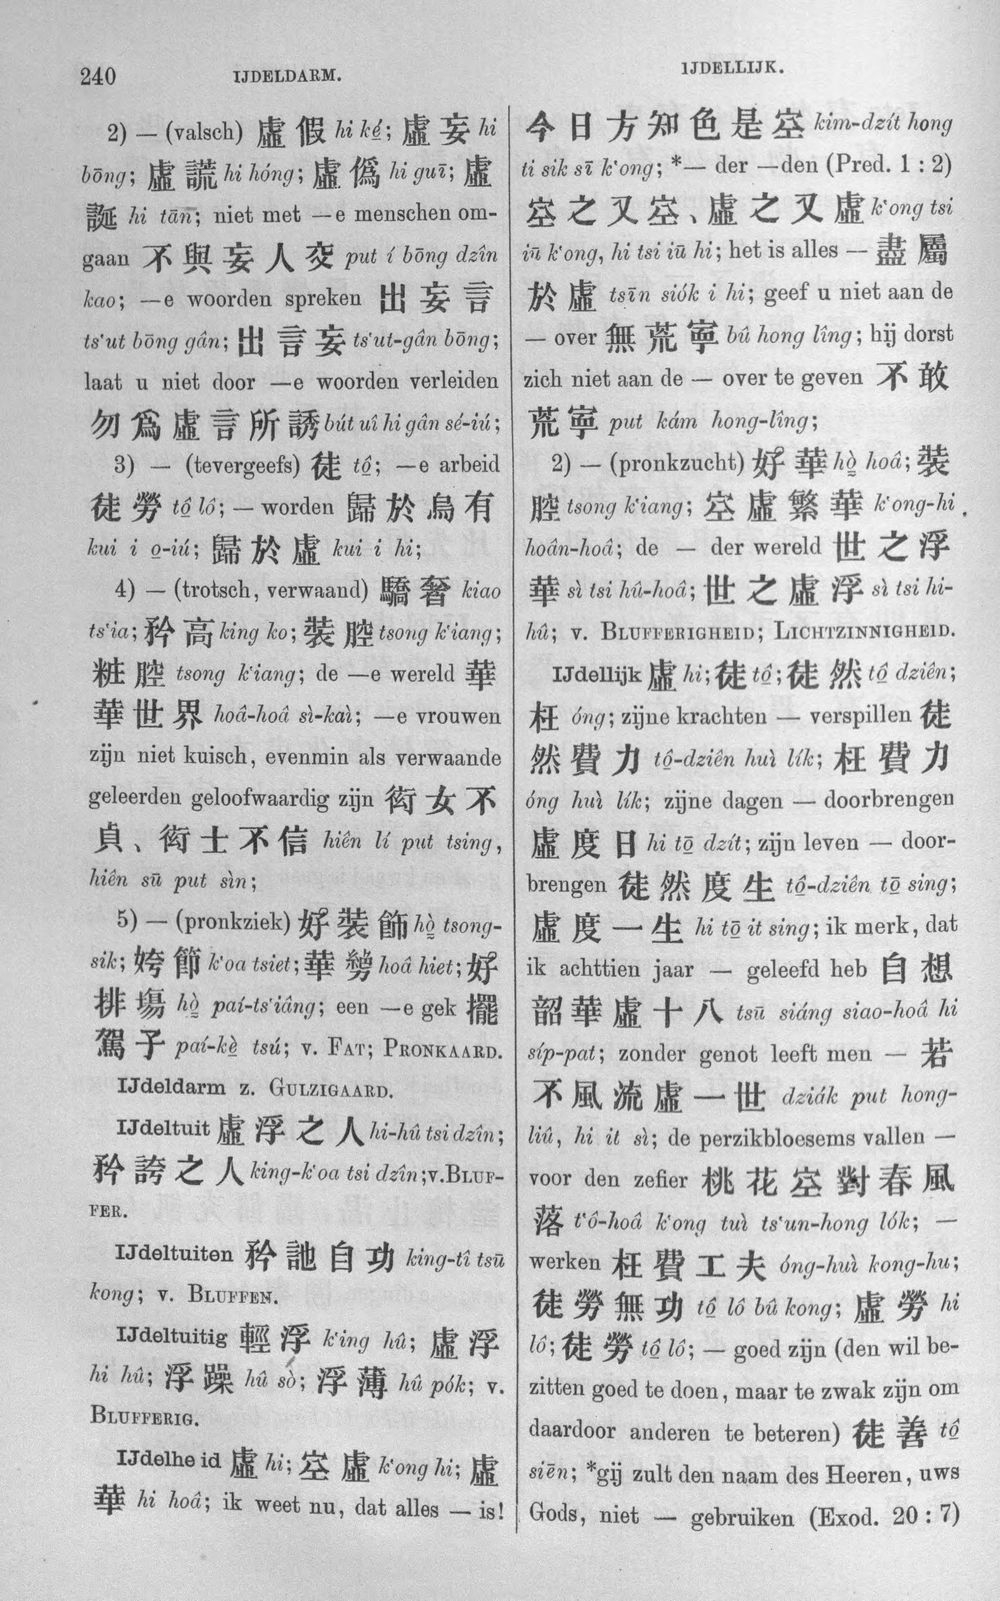 240
IJDELDARM.
IJDELLIJK.
2) — (valsch) 虛假 hi ké; 虛妄 hi
bōng; 虛謊 hi hóng; 虛僞 hi guī; 虛
誕 hi tān; niet met —e menschen om-
gaan 不與妄人交 put í bōng dzîn
kao; —e woorden spreken 出妄言
ts‘ut bōng gân; 出言妄 ts‘ut-gân bōng;
laat u niet door —e woorden verleiden
勿爲虛言所誘 bút uî hi gân sé-iú;
3) — (tevergeefs) 徒 tô̤; —e arbeid
徒勞 tô̤ lô; — worden 歸於烏有
kui i o̤-iú; 歸於虛 kui i hi;
4) — (trotsch, verwaand) 驕奢 kiao
ts‘ia; 矜高 king ko; 裝腔 tsong k‘iang;
粧腔 tsong k‘iang; de —e wereld 華
華世界 hoâ-hoâ sì-kaì; —e vrouwen
zijn niet kuisch, evenmin als verwaande
geleerden geloofwaardig zijn 衒女不
貞、衒士不信 hiên lí put tsing,
hiên sū put sìn;
5) — (pronkziek) 好裝飾 hò̤ tsong-
sik; 姱節 k‘oa tsiet; 華 hoâ hiet; 好
排塲 hò̤ paí-ts‘iâng; een —e gek 擺
駕子 paí-kè̤ tsú; v. FAT; PRONKAARD.
IJdeldarm z. GULZIGAARD.
IJdeltuit 虛浮之人 hi-hû tsi dzîn;
矜誇之人 king-k‘oa tsi dzîn; v. BLUF-
FER.
IJdeltuiten 矜訑自功 king-tî tsū
kong; v. BLUFFEN.
IJdeltuitig 輕浮 k‘ing hû; 虛浮
hi hû; 浮躁 hû sò; 浮薄 hû pók; v.
BLUFFERIG.
IJdelheid 虛 hi; 空虛 k‘ong hi; 虛
華 hi hoâ; ik weet nu, dat alles — is!
今日方知色是空 kim-dzít hong
ti sik sī k‘ong; *— der —den (Pred. 1 : 2)
空之又空、虛之又虛 k‘ong tsi
iū k‘ong, hi tsi iū hi; het is alles — 盡屬
於虛 tsīn siók i hi; geef u niet aan de
— over 無荒寧 bû hong lîng; hij dorst
zich niet aan de — over te geven 不敢
荒寧 put kám hong-lîng;
2) — (pronkzucht) 好華 hò̤ hoâ; 裝
腔 tsong k‘iang; 空虛繁華 k‘ong-hi
hoân-hoâ; de — der wereld 世之浮
華 sì tsi hû-hoâ; 世之虛浮 sì tsi hi-
hû; v. BLUFFERIGHEID; LICHTZINNIGHEID.
IJdellijk 虛 hi; 徒 tô̤; 徒然 tô̤ dziên;
枉 óng; zijne krachten — verspillen 徒
然費力 tô̤-dziên huì lík; 枉費力
óng huì lík; zijne dagen — doorbrengen
虛度日 hi tō̤ dzít; zijn leven — door-
brengen 徒然度生 tô̤-dziên tō̤ sing;
虛度一生 hi tō̤ it sing; ik merk, dat
ik achttien jaar — geleefd heb 自想
韶華虛十八 tsū siáng siao-hoâ hi
síp-pat; zonder genot leeft men — 若
不風流虛一世 dziák put hong-
liû, hi it sì; de perzikbloesems vallen —
voor den zefier 桃花空對春風
落 t‘ô-hoâ k‘ong tuì ts‘un-hong lók; —
werken 枉費工夫 óng-huì kong-hu;
徒勞無功 tô̤ lô bû kong; 虛勞 hi
lô; 徒勞 tô̤ lô; — goed zijn (den wil be-
zitten goed te doen, maar te zwak zijn om
daardoor anderen te beteren) 徒善 tô̤
siēn; *gij zult den naam des Heeren, uws
Gods, niet — gebruiken (Exod. 20 : 7)